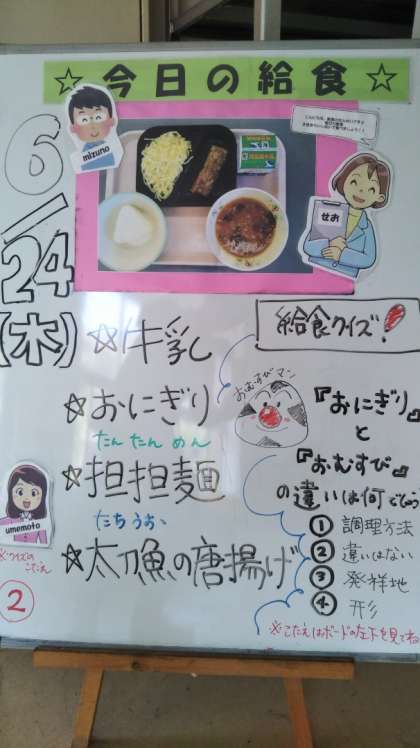 ☆今日の給食☆
mizuno
せお
6/24
(木)
☆牛乳
☆おにぎり
たんたんめん
☆担担麺
たちうお
☆太刀魚の唐揚げ
umemoto
※クイズの
こたえ
②
給食クイズ!
おむすびマン
『おにぎり』
と
『おむすび』
の違いは何でしょう
① 調理方法
② 違いはない
③ 発祥地
④ 形
※こたえはボードの左下を見てね